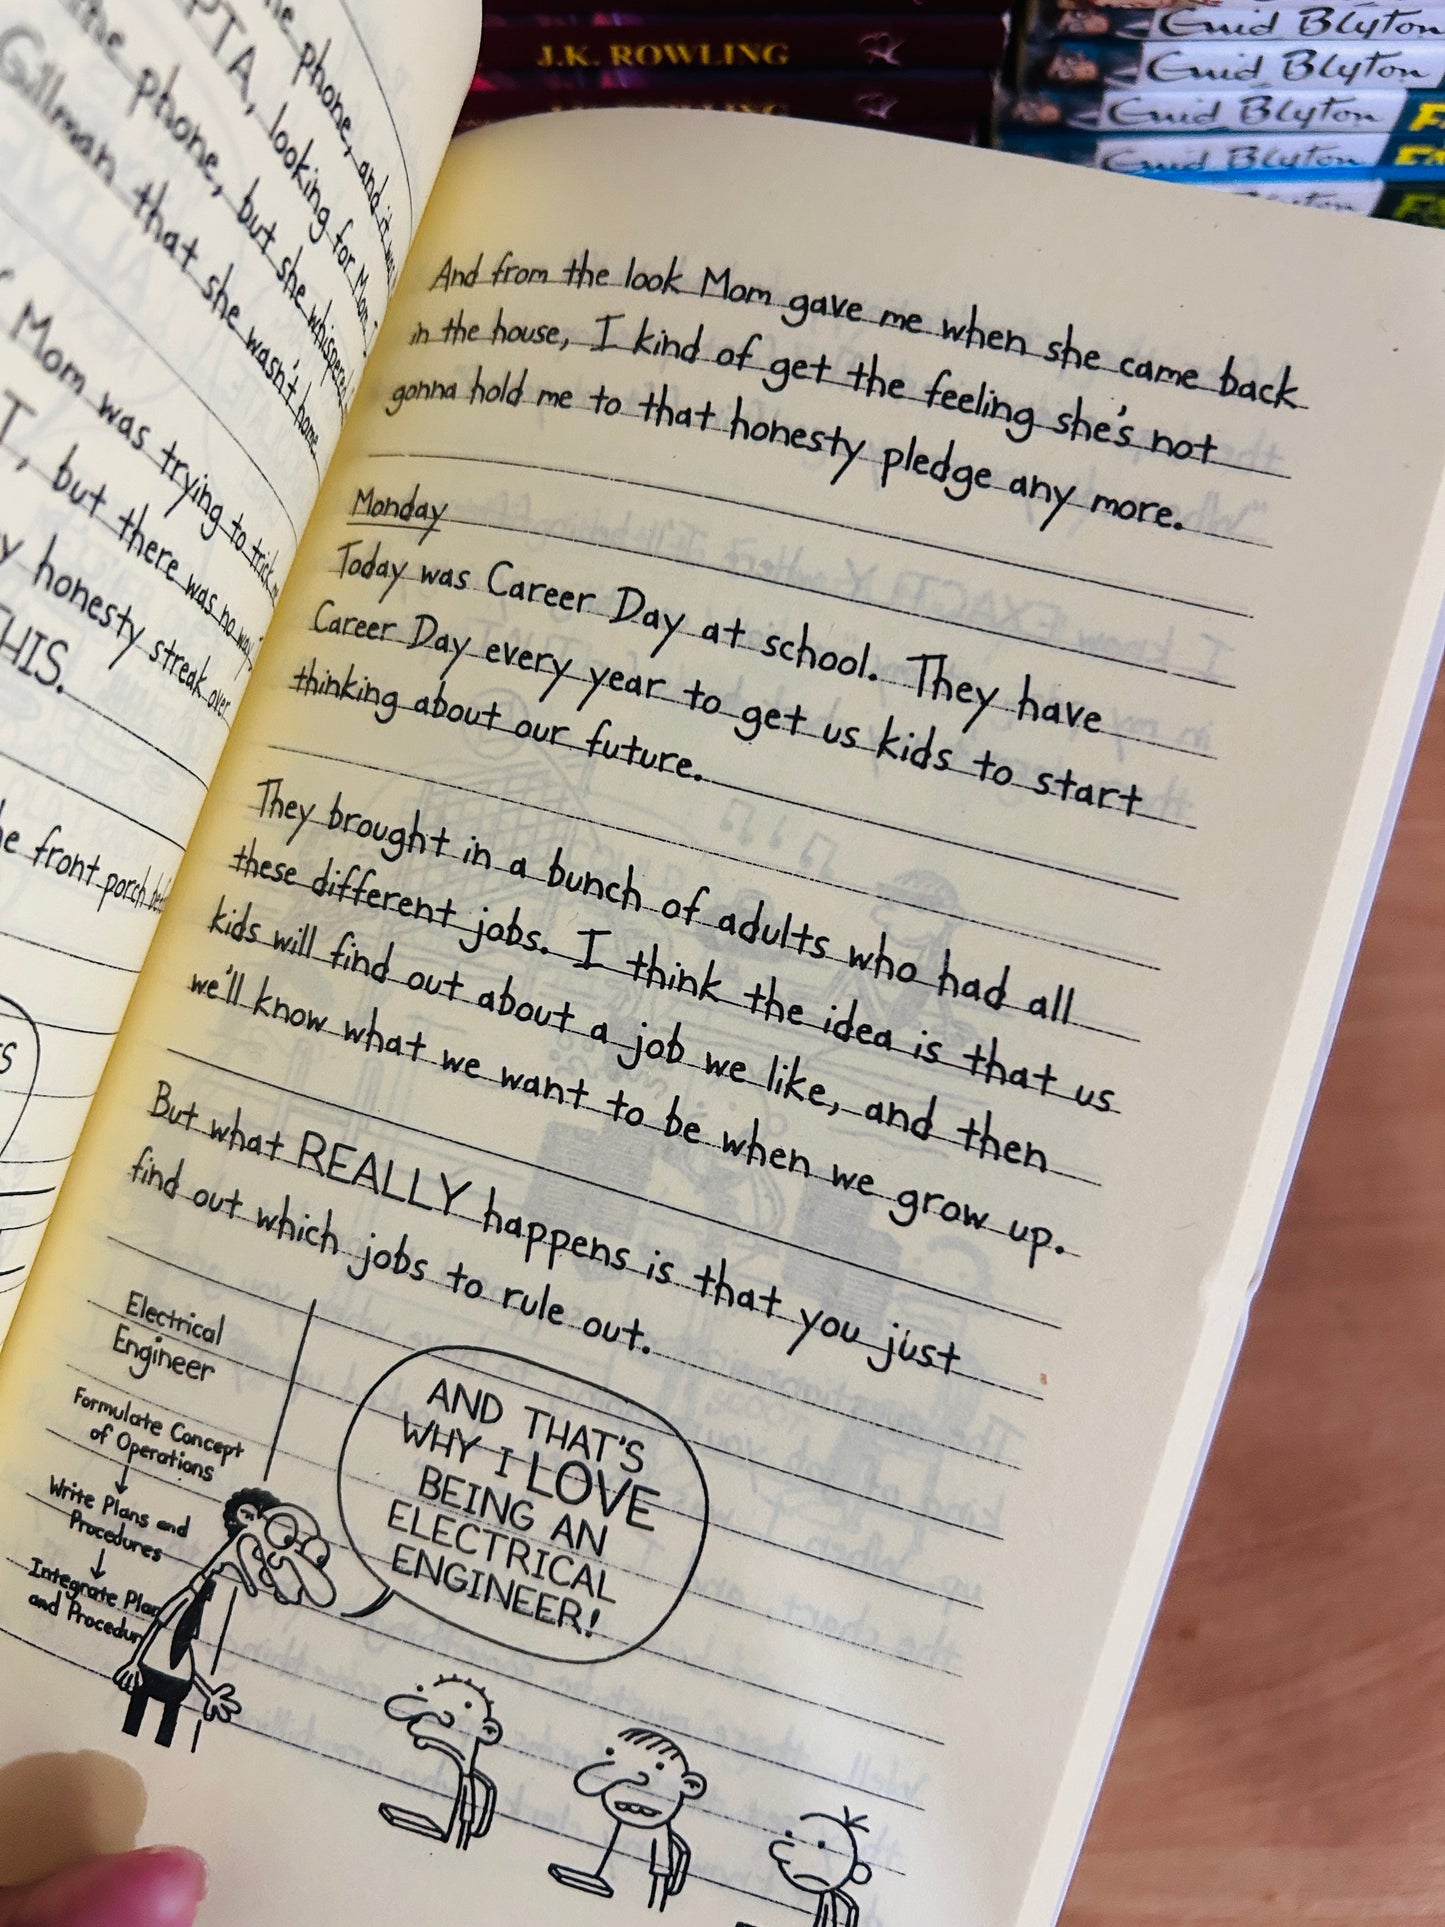 J.K. ROWLING
Enid Blyton
Enid Blyton
Enid Blyton
Enid Blyton
the phone, and it was
PTA, looking for Mom.
the phone, but she whispered
Gillman that she wasn't home
Mom was trying to trick
T, but there was no way
honesty streak over
THIS.
front porch
And from the look Mom gave me when she came back
in the house, I kind of get the feeling she's not
gonna hold me to that honesty pledge any more.
Monday
Today was Career Day at school. They have
Career Day every year to get us kids to start
thinking about our future.
They brought in a bunch of adults who had all
these different jobs. I think the idea is that us
kids will find out about a job we like, and then
we'll know what we want to be when we grow up.
But what REALLY happens is that you just
find out which jobs to rule out.
Electrical
Engineer
Formulate Concept
of Operations
Write Plans and
Procedures
Integrate Plan
and Procedur
AND THAT'S
WHY I LOVE
BEING AN
ELECTRICAL
ENGINEER!